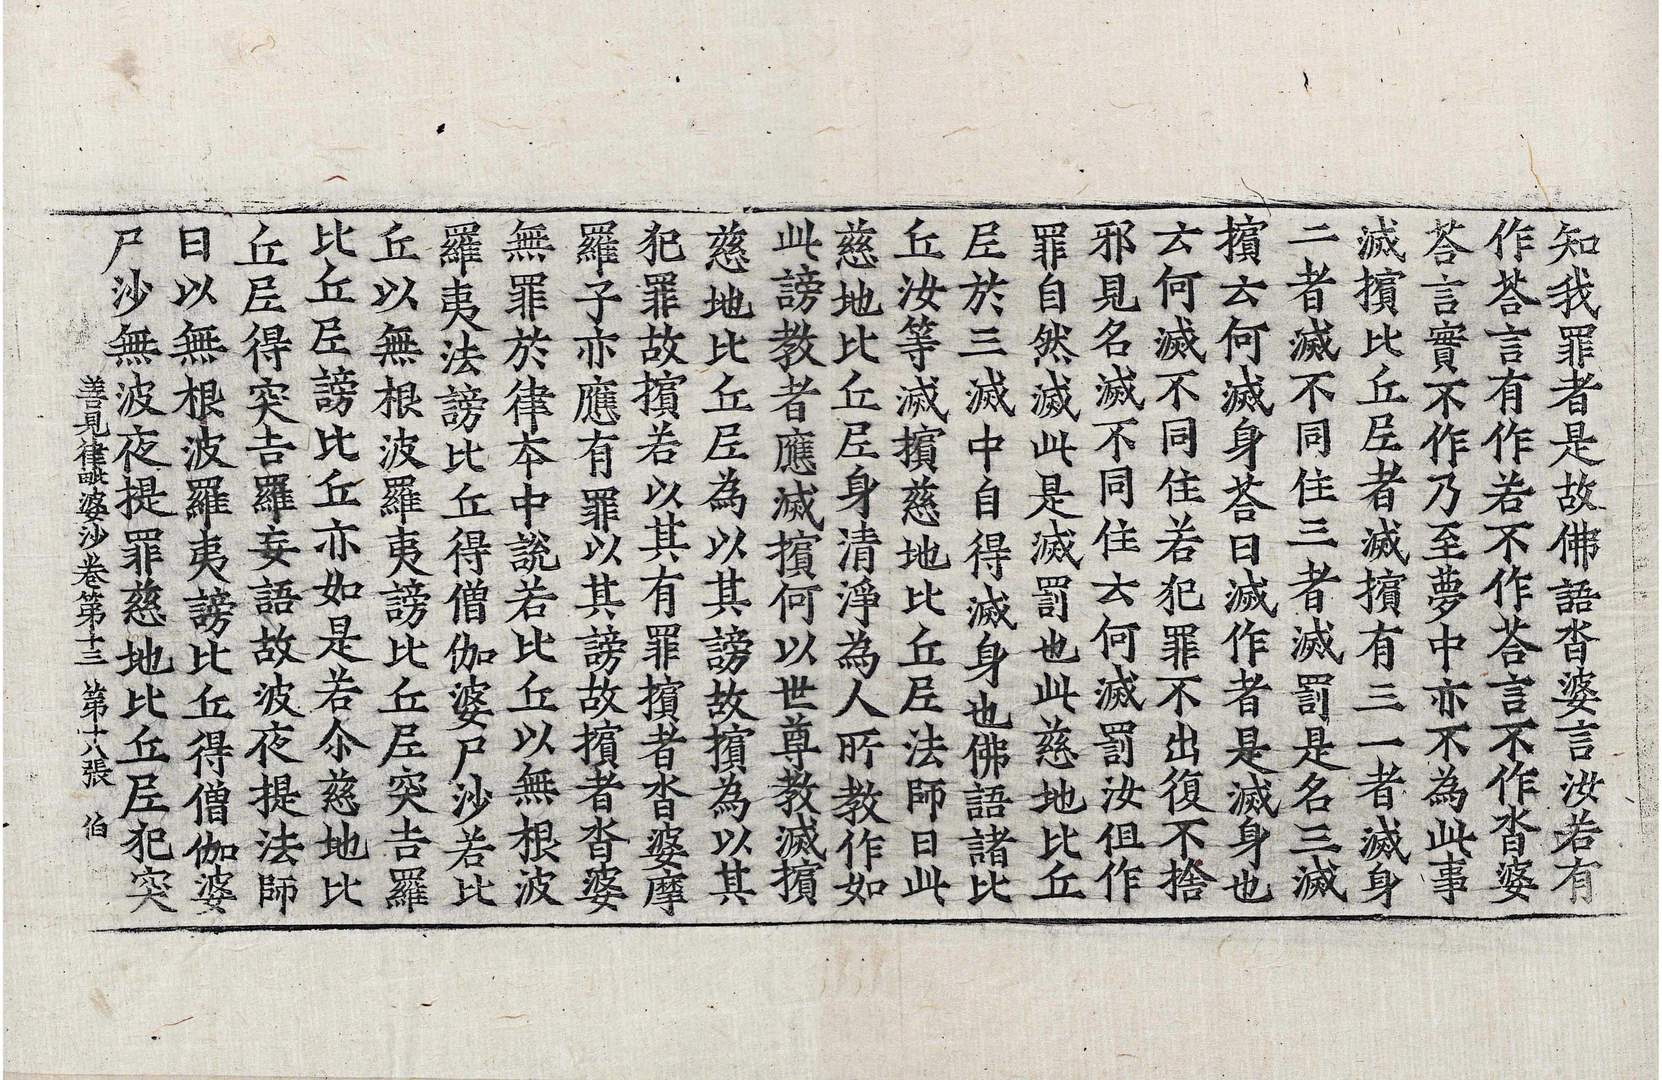 知我罪者是故佛語沓婆言汝若有
作荅言有作若不作荅言不作沓婆
荅言實不作乃至夢中亦不為此事
滅擯比丘𡰱者滅擯有三一者滅身
二者滅不同住三者滅罰是名三滅
擯云何滅身荅曰滅作者是滅身也
云何滅不同住若犯罪不出復不捨
邪見名滅不同住云何滅罰汝但作
罪自然滅此是滅罰也此慈地比丘
𡰱於三滅中自得滅身也佛語諸比
丘汝等滅擯慈地比丘𡰱法師曰此
慈地比丘𡰱身清淨為人所教作如
此謗教者應滅擯何以世尊教滅擯
慈地比丘𡰱為以其謗故擯為以其
犯罪故擯若以其有罪擯者沓婆摩
羅子亦應有罪以其謗故擯者沓婆
無罪於律本中說若比丘以無根波
羅夷法謗比丘得僧伽婆尸沙若比
丘以無根波羅夷謗比丘𡰱突吉羅
比丘𡰱謗比丘亦如是若尒慈地比
丘𡰱得突吉羅妄語故波夜提法師
曰以無根波羅夷謗比丘得僧伽婆
尸沙無波夜提罪慈地比丘𡰱犯突
善見律毗婆沙卷第十三 第十八張 伯